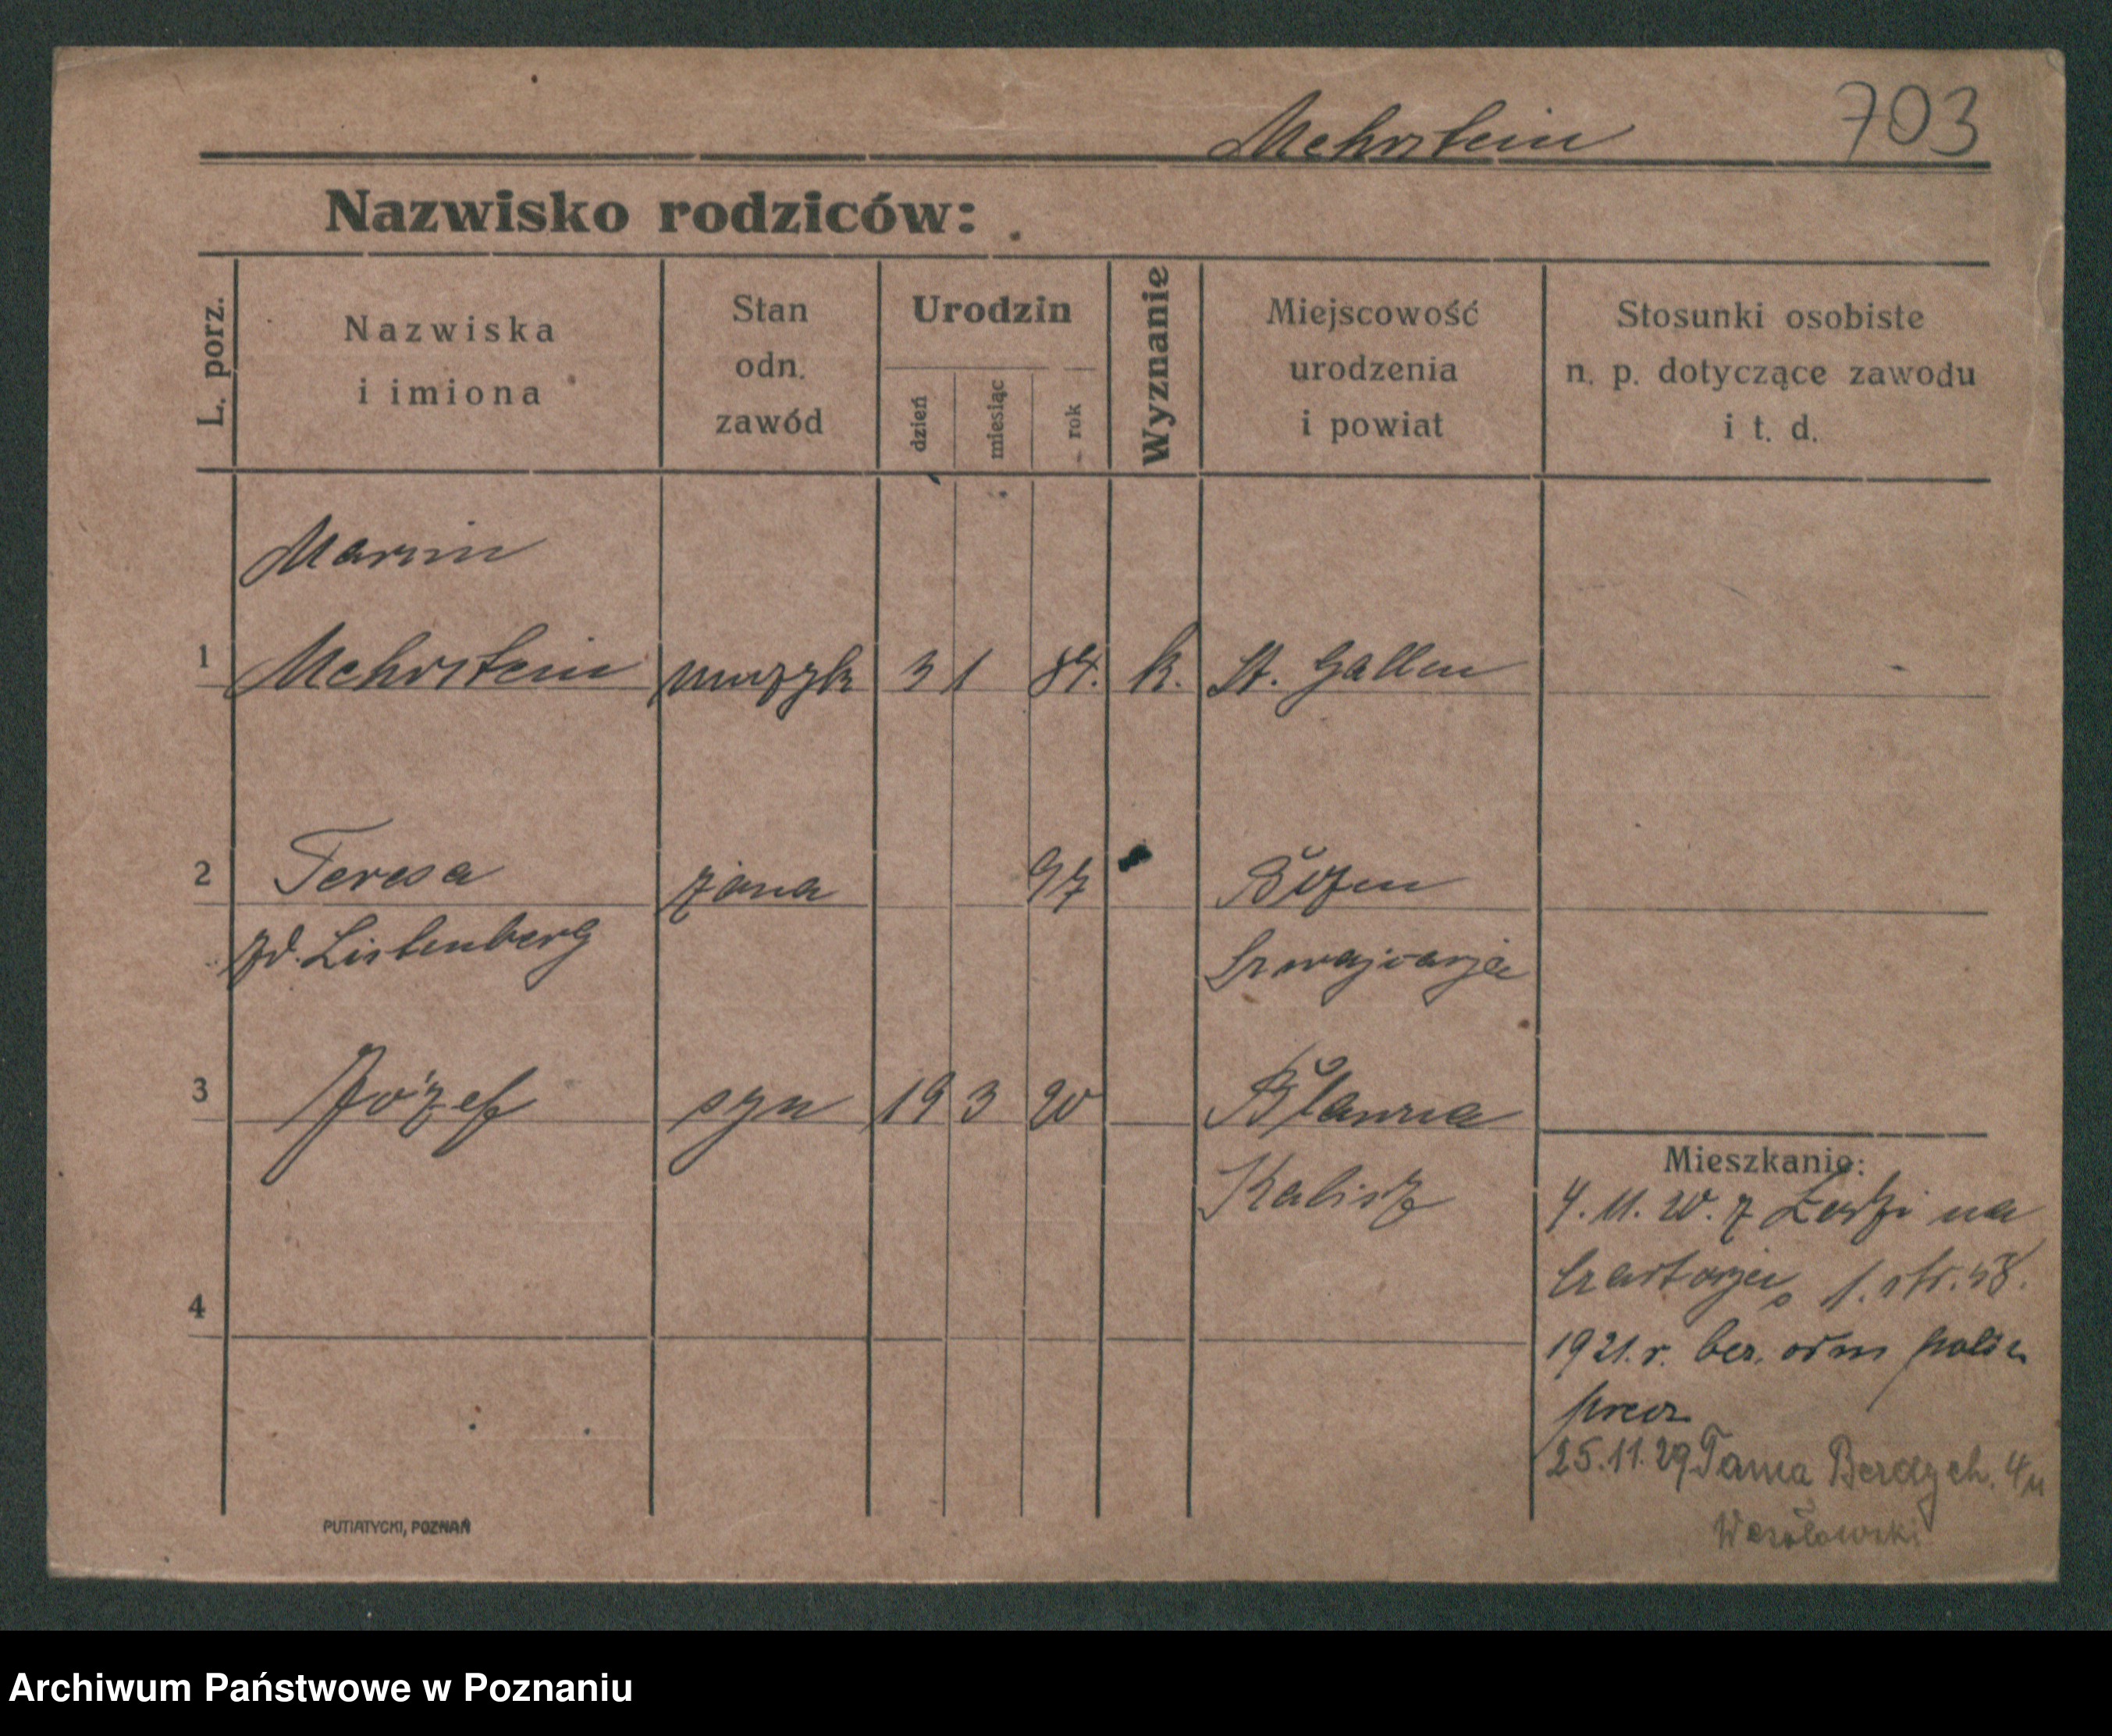 Mehrstein 703
Nazwisko rodziców:
L. porz.
Nazwiska
i imiona
Stan
odn.
zawód
Urodzin
dzień
miesiąc
rok
Wyznanie
Miejscowość
urodzenia
i powiat
Stosunki osobiste
n. p. dotyczące zawodu
i t. d.
1 Mehrstein muzyk 3 1 84. k. St. Gallen
2 Teresa żona 97
zd. Listenberg
3 Józef syn 19 3 20
Kalisz
4
Mieszkanie:
4. 11. 20. z Łodzi na
1. str. 
1921. r. bez. odm
25.11.29 Tama Berdych. 4
Wesołowski
PUTIATYCKI, POZNAŃ
Archiwum Państwowe w Poznaniu